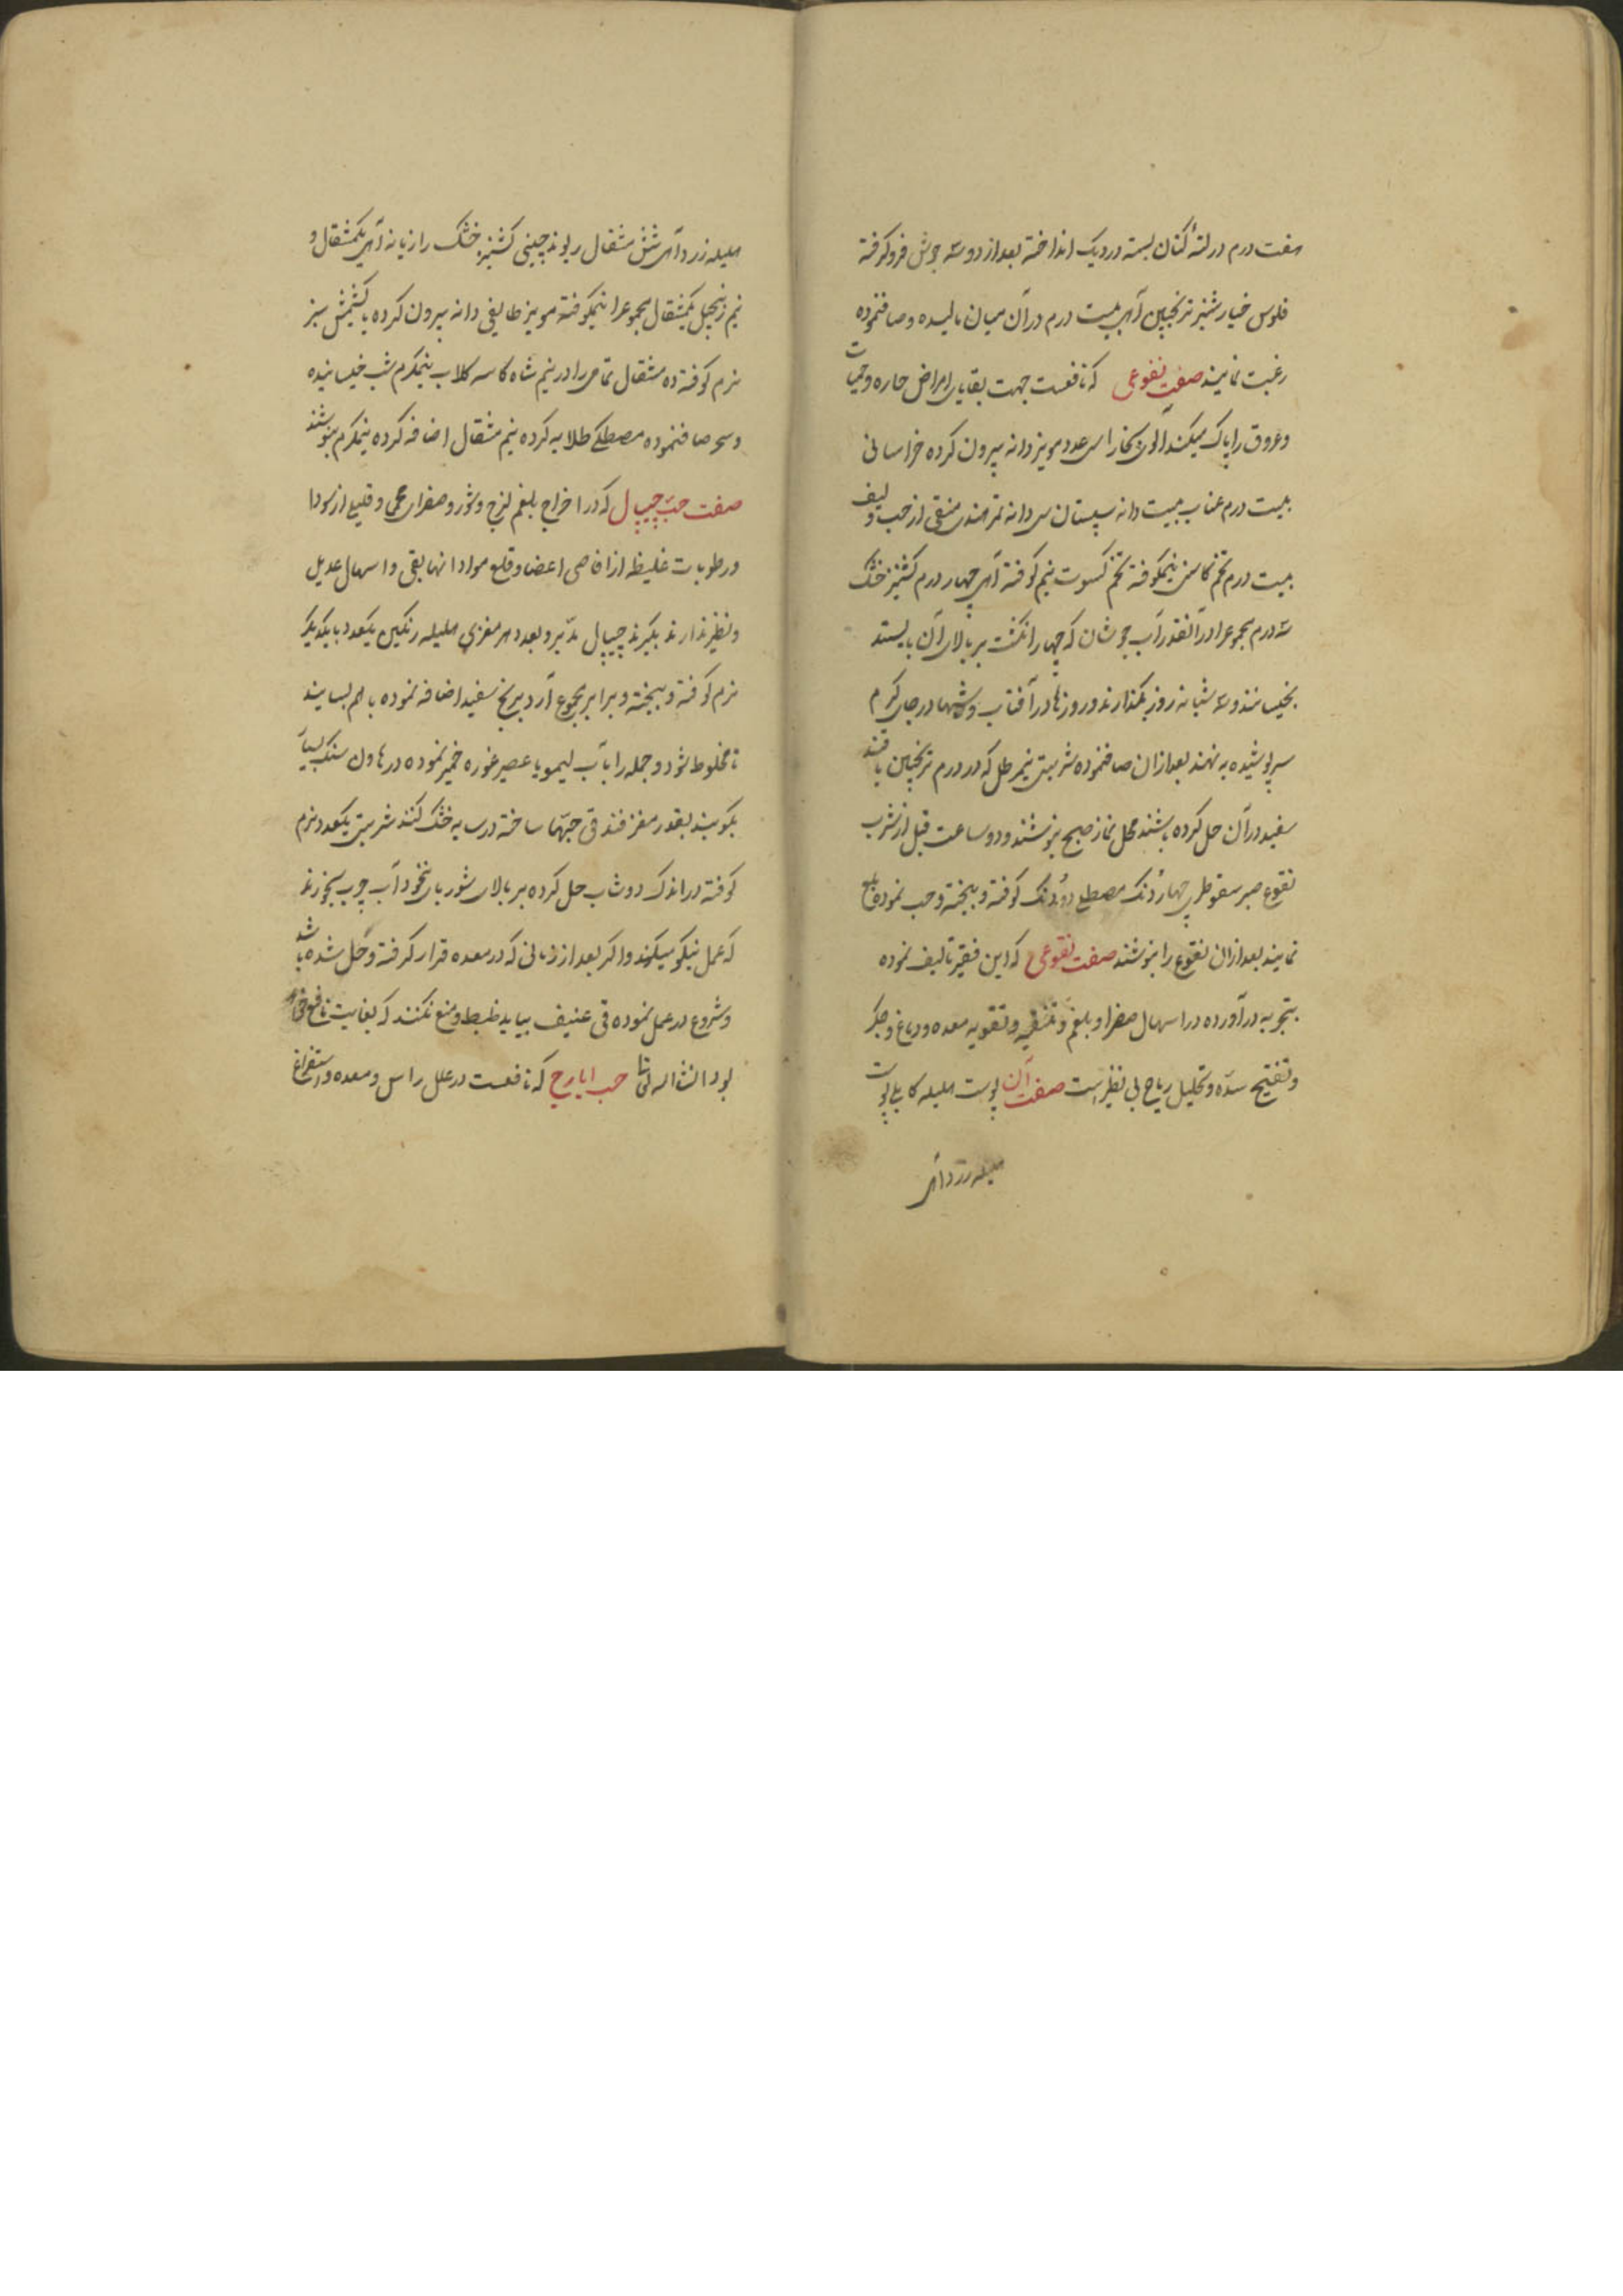 هفت درم در لتهٔ کتان بسته در دیک انداخته بعد از دو سه جوش فرو کرفته
فلوس خیار شنبر ترنجبین از هر یک بیست درم در آن میان مالیده و صاف نموده
رغبت نمایند صفت نقوعی که نافعست جهت بقایای امراض حاره و حمیات
و عروق را پاک میکند آلوی بخارا سی عدد مویز دانه بیرون کرده خراسانی
بیست درم عناب بیست دانه سپستان سی دانه تمر هندی منقی از حب و لیف
بیست درم تخم کاسنی نیمکوفته تخم کسوت نیم کوفته از هر یک چهار درم کشنیز خشک
سه درم مجموع را در آنقدر آب جوشان که چهار انکشت بر بالای آن بایستد
بخیسانند و سه شبانه روز بکذارند روزها در آفتاب و شبها در جای کرم
سر پوشیده بنهند بعد از ان صاف نموده شربتی نیم رطل که ده درم ترنجبین یا قند
سفید در آن حل کرده باشند محل نماز صبح بنوشند و دو ساعت قبل از شرب
نقوع صبر سقوطری چهار دنک مصطکی دو دنک کوفته و بیخته و حب نموده بلع
نمایند بعد از ان نقوع را بنوشند صفت نقوعی که این فقیر تالیف نموده
بتجربه در آورده در اسهال صفرا و بلغم و تنقیه و تقویه معده و دماغ و جکر
و تفتیح سده و تحلیل ریاح بی نظیر است صفت آن پوست هلیله کابلی پوست
هلیله زرد از هر یک
هلیله زرد از هر یک شش مثقال ریوند چینی کشنیز خشک رازیانه از هر یک یکمثقال و
نیم زنجبیل یکمثقال مجموع را نیمکوفته مویز طایفی دانه بیرون کرده یا کشمش سبز
نرم کوفته ده مثقال تمامی را در نیم شاه کاسه کلاب نیمکرم شب خیسانیده
و سحر صاف نموده مصطکی صلایه کرده نیم مثقال اضافه کرده نیمکرم بنوشند
صفت حب چیپال که در اخراج بلغم لزج و شور و صفرای محی و قلیلی از سودا
و رطوبات غلیظه از اقاصی اعضا و قلع مواد انها بقی و اسهال عدیل
و نظیر ندارند بکیرند چیپال مدبر و بعدد هر مغزی هلیله رنکین یکعدد با یکدیکر
نرم کوفته و بیخته و برابر مجموع آرد برنج سفید اضافه نموده با هم بسایند
تا مخلوط شود و جمله را بآب لیمو یا عصیر غوره خمیر نموده در هاون سنک بسیار
بکوبند بقدر مغز فندقی حبها ساخته در سایه خشک کنند شربتی یکعدد نرم
کوفته در اندک دوشاب حل کرده بر بالای شوربای نخود آب چرب بخورند
که عمل نیکو میکند و اکر بعد از زمانی که در معده قرار کرفته و حل شده باشد
و شروع در عمل نموده قی عنیف بیاید ضبط و منع نکنند که بغایت نافع
بود انشا الله تعالی حب ایارج که نافعست در علل راس و معده و استفراغ